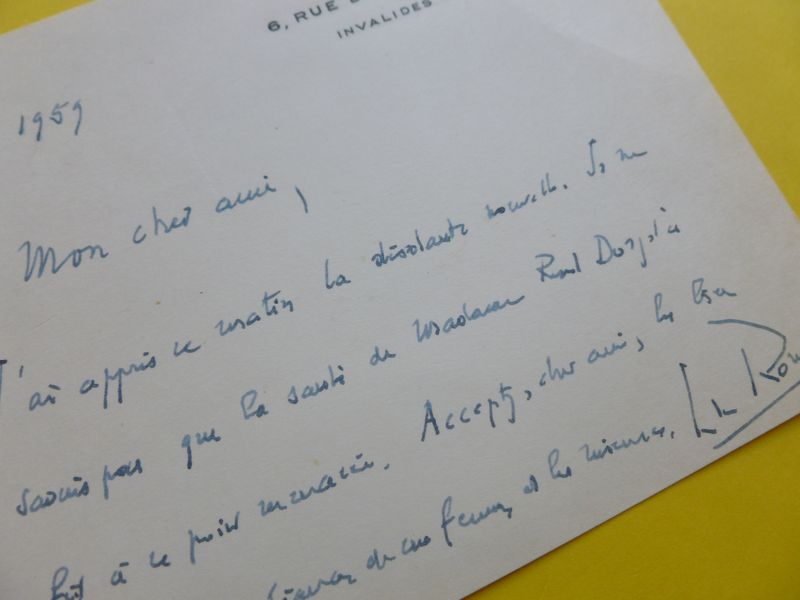 6, RUE
INVALIDES
1959
Mon cher ami,
J'ai appris ce matin la désolante nouvelle. Je ne
savais pas que la santé de Madame
fût à ce point menacée. Acceptez, cher ami, les
de ma femme et les miennes.